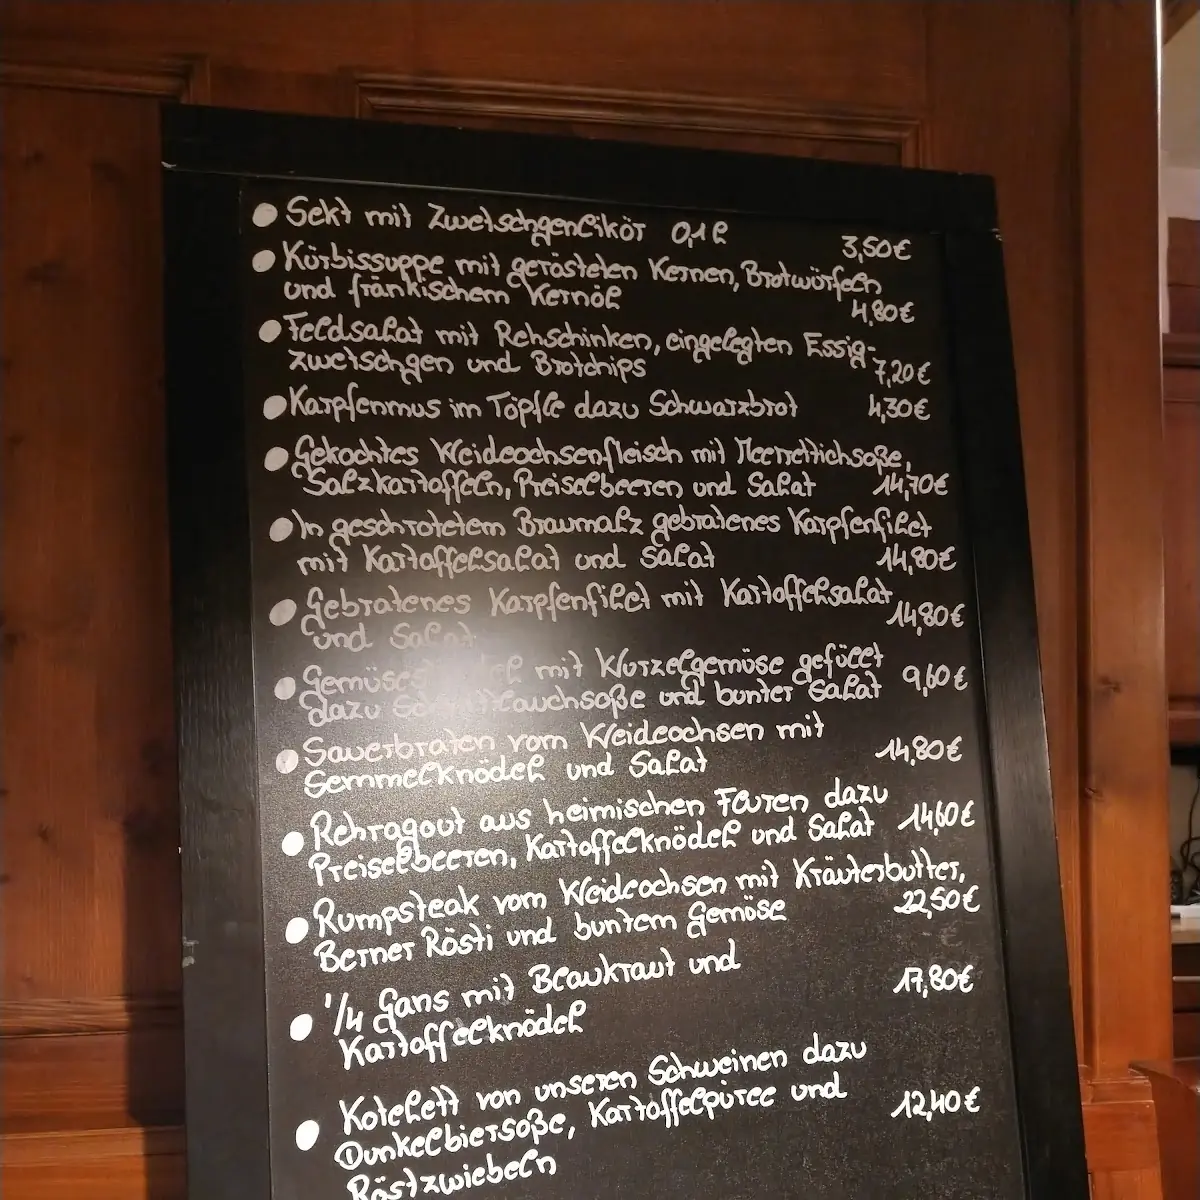 Sekt mit Zwetschgenlikör 0,1 l 3,50€
Kürbissuppe mit gerösteten Kernen, Brotwürfeln
und fränkischem Kernöl 4,80€
Feldsalat mit Rehschinken, eingelegten Essig-
zwetschgen und Brotchips 7,20€
Karpfenmus im Töpfle dazu Schwarzbrot 4,30€
Gekochtes Weideochsenfleisch mit Meerrettichsoße,
Salzkartoffeln, Preiselbeeren und Salat 14,70€
In geschrotetem Braumalz gebratenes Karpfenfilet
mit Kartoffelsalat und Salat 14,80€
Gebratenes Karpfenfilet mit Kartoffelsalat
und Salat 14,80€
mit Wurzelgemüse gefüllt
dazu Schnittlauchsoße und bunter Salat 9,60€
Sauerbraten vom Weideochsen mit
Semmelknödel und Salat 14,80€
Rehragout aus heimischen Fluren dazu
Preiselbeeren, Kartoffelknödel und Salat 14,60€
Rumpsteak vom Weideochsen mit Kräuterbutter,
Berner Rösti und buntem Gemüse 22,50€
1/4 Gans mit Blaukraut und
Kartoffelknödel 17,80€
Kotelett von unseren Schweinen dazu
Dunkelbiersoße, Kartoffelpüree und 12,40€
Röstzwiebeln